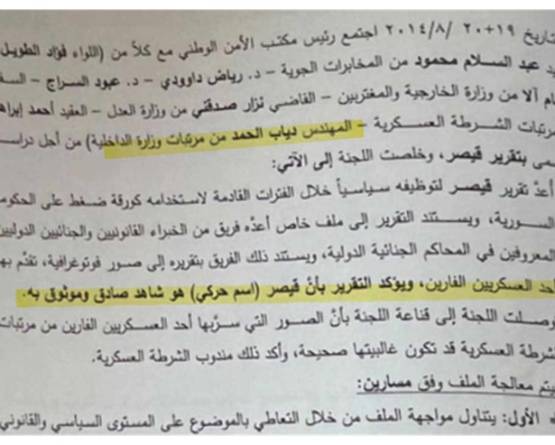 تاريخ ١٩+٢٠ /٢٠١٤/٨ اجتمع رئيس مكتب الأمن الوطني مع كلاً من (اللواء فؤاد الطويل
عبد السلام محمود من المخابرات الجوية – د. رياض داوودي – د. عبود السراج – السف
آلا من وزارة الخارجية والمغتربين – القاضي نزار صدقني من وزارة العدل – العقيد أحمد إبراه
مرتبات الشرطة العسكرية – المهندس دياب الحمد من مرتبات وزارة الداخلية) من أجل دراس
مى بتقرير قيصر، وخلصت اللجنة إلى الآتي:
أعدّ تقرير قيصر لتوظيفه سياسياً خلال الفترات القادمة لاستخدامه كورقة ضغط على الحكوم
السورية، ويستند التقرير إلى ملف خاص أعدّه فريق من الخبراء القانونيين والجنائيين الدوليين
المعروفين في المحاكم الجنائية الدولية، ويستند ذلك الفريق بتقريره إلى صور فوتوغرافية، تقدّم به
أحد العسكريين الفارين، ويؤكد التقرير بأنّ قيصر (اسم حركي) هو شاهد صادق وموثوق به.
وصلت اللجنة إلى قناعة اللجنة بأنّ الصور التي سرّبها أحد العسكريين الفارين من مرتبات
لشرطة العسكرية قد تكون غالبيتها صحيحة، وأكد ذلك مندوب الشرطة العسكرية.
يتم معالجة الملف وفق مسارين:
الأول: يتناول مواجهة الملف من خلال التعاطي بالموضوع على المستوى السياسي والقانوني